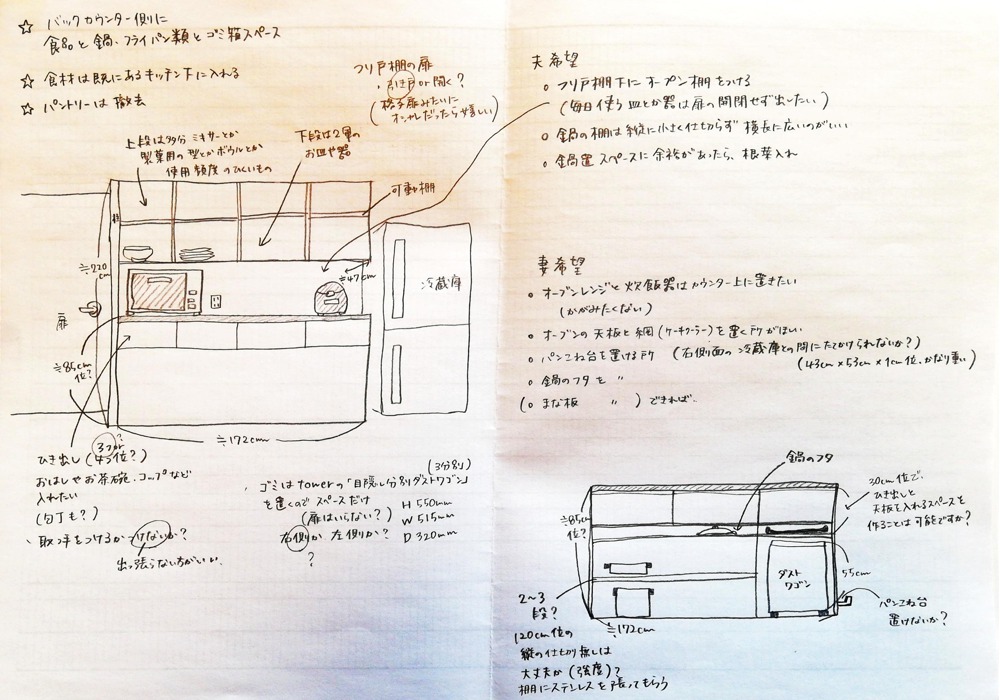 ☆ バックカウンター側に
食品と鍋、フライパン類とゴミ箱スペース
☆ 食材は既にあるキッチン下に入れる
☆ パントリーは撤去
フリ戸棚の扉
・引き戸or開く?
(格子扉みたいに
オシャレだったら嬉しい)
上段は多分ミキサーとか
製菓用の型とかボウルとか
使用頻度のひくいもの
下段は2軍の
お皿や器
可動棚
≒220cm
≒47cm
冷蔵庫
扉
≒85cm
位?
≒172cm
ひき出し(3つor4つ位?)
おはしやお茶碗、コップなど
入れたい
(包丁も?)
、取っ手をつけるかつけないか?
出っ張らない方がいい、
(3分別)
・ゴミはtowerの「目隠し分別ダストワゴン」
を置くのでスペースだけ
(扉はいらない?)
右側か左側か?
?
H 550mm
W 515mm
D 320mm
夫希望
○ フリ戸棚下にオープン棚をつける
(毎日使う皿とか器は扉の開閉せず出したい)
○ 鍋の棚は縦に小さく仕切らず横長に広いのがいい
○ 鍋置スペースに余裕があったら、根菜入れ
妻希望
○ オーブンレンジと炊飯器はカウンター上に置きたい
(かがみたくない)
○ オーブンの天板と網(ケーキクーラー)を置く所がほしい
○ パンこね台を置ける所 (右側面の冷蔵庫との間にたてかけられないか?)
(43cm×53cm×1cm位、かなり重い)
○ 鍋のフタを 〃
(○ まな板 〃 )できれば、
鍋のフタ
20cm位で、
ひき出しと
天板を入れるスペースを
作ることは可能ですか?
≒85cm
位?
ダスト
ワゴン
55cm
パンこね台
置けないか?
≒172cm
2〜3
段?
120cm位の
縦の仕切り無しは
大丈夫か(強度)?
棚にステンレスを張ってもらう